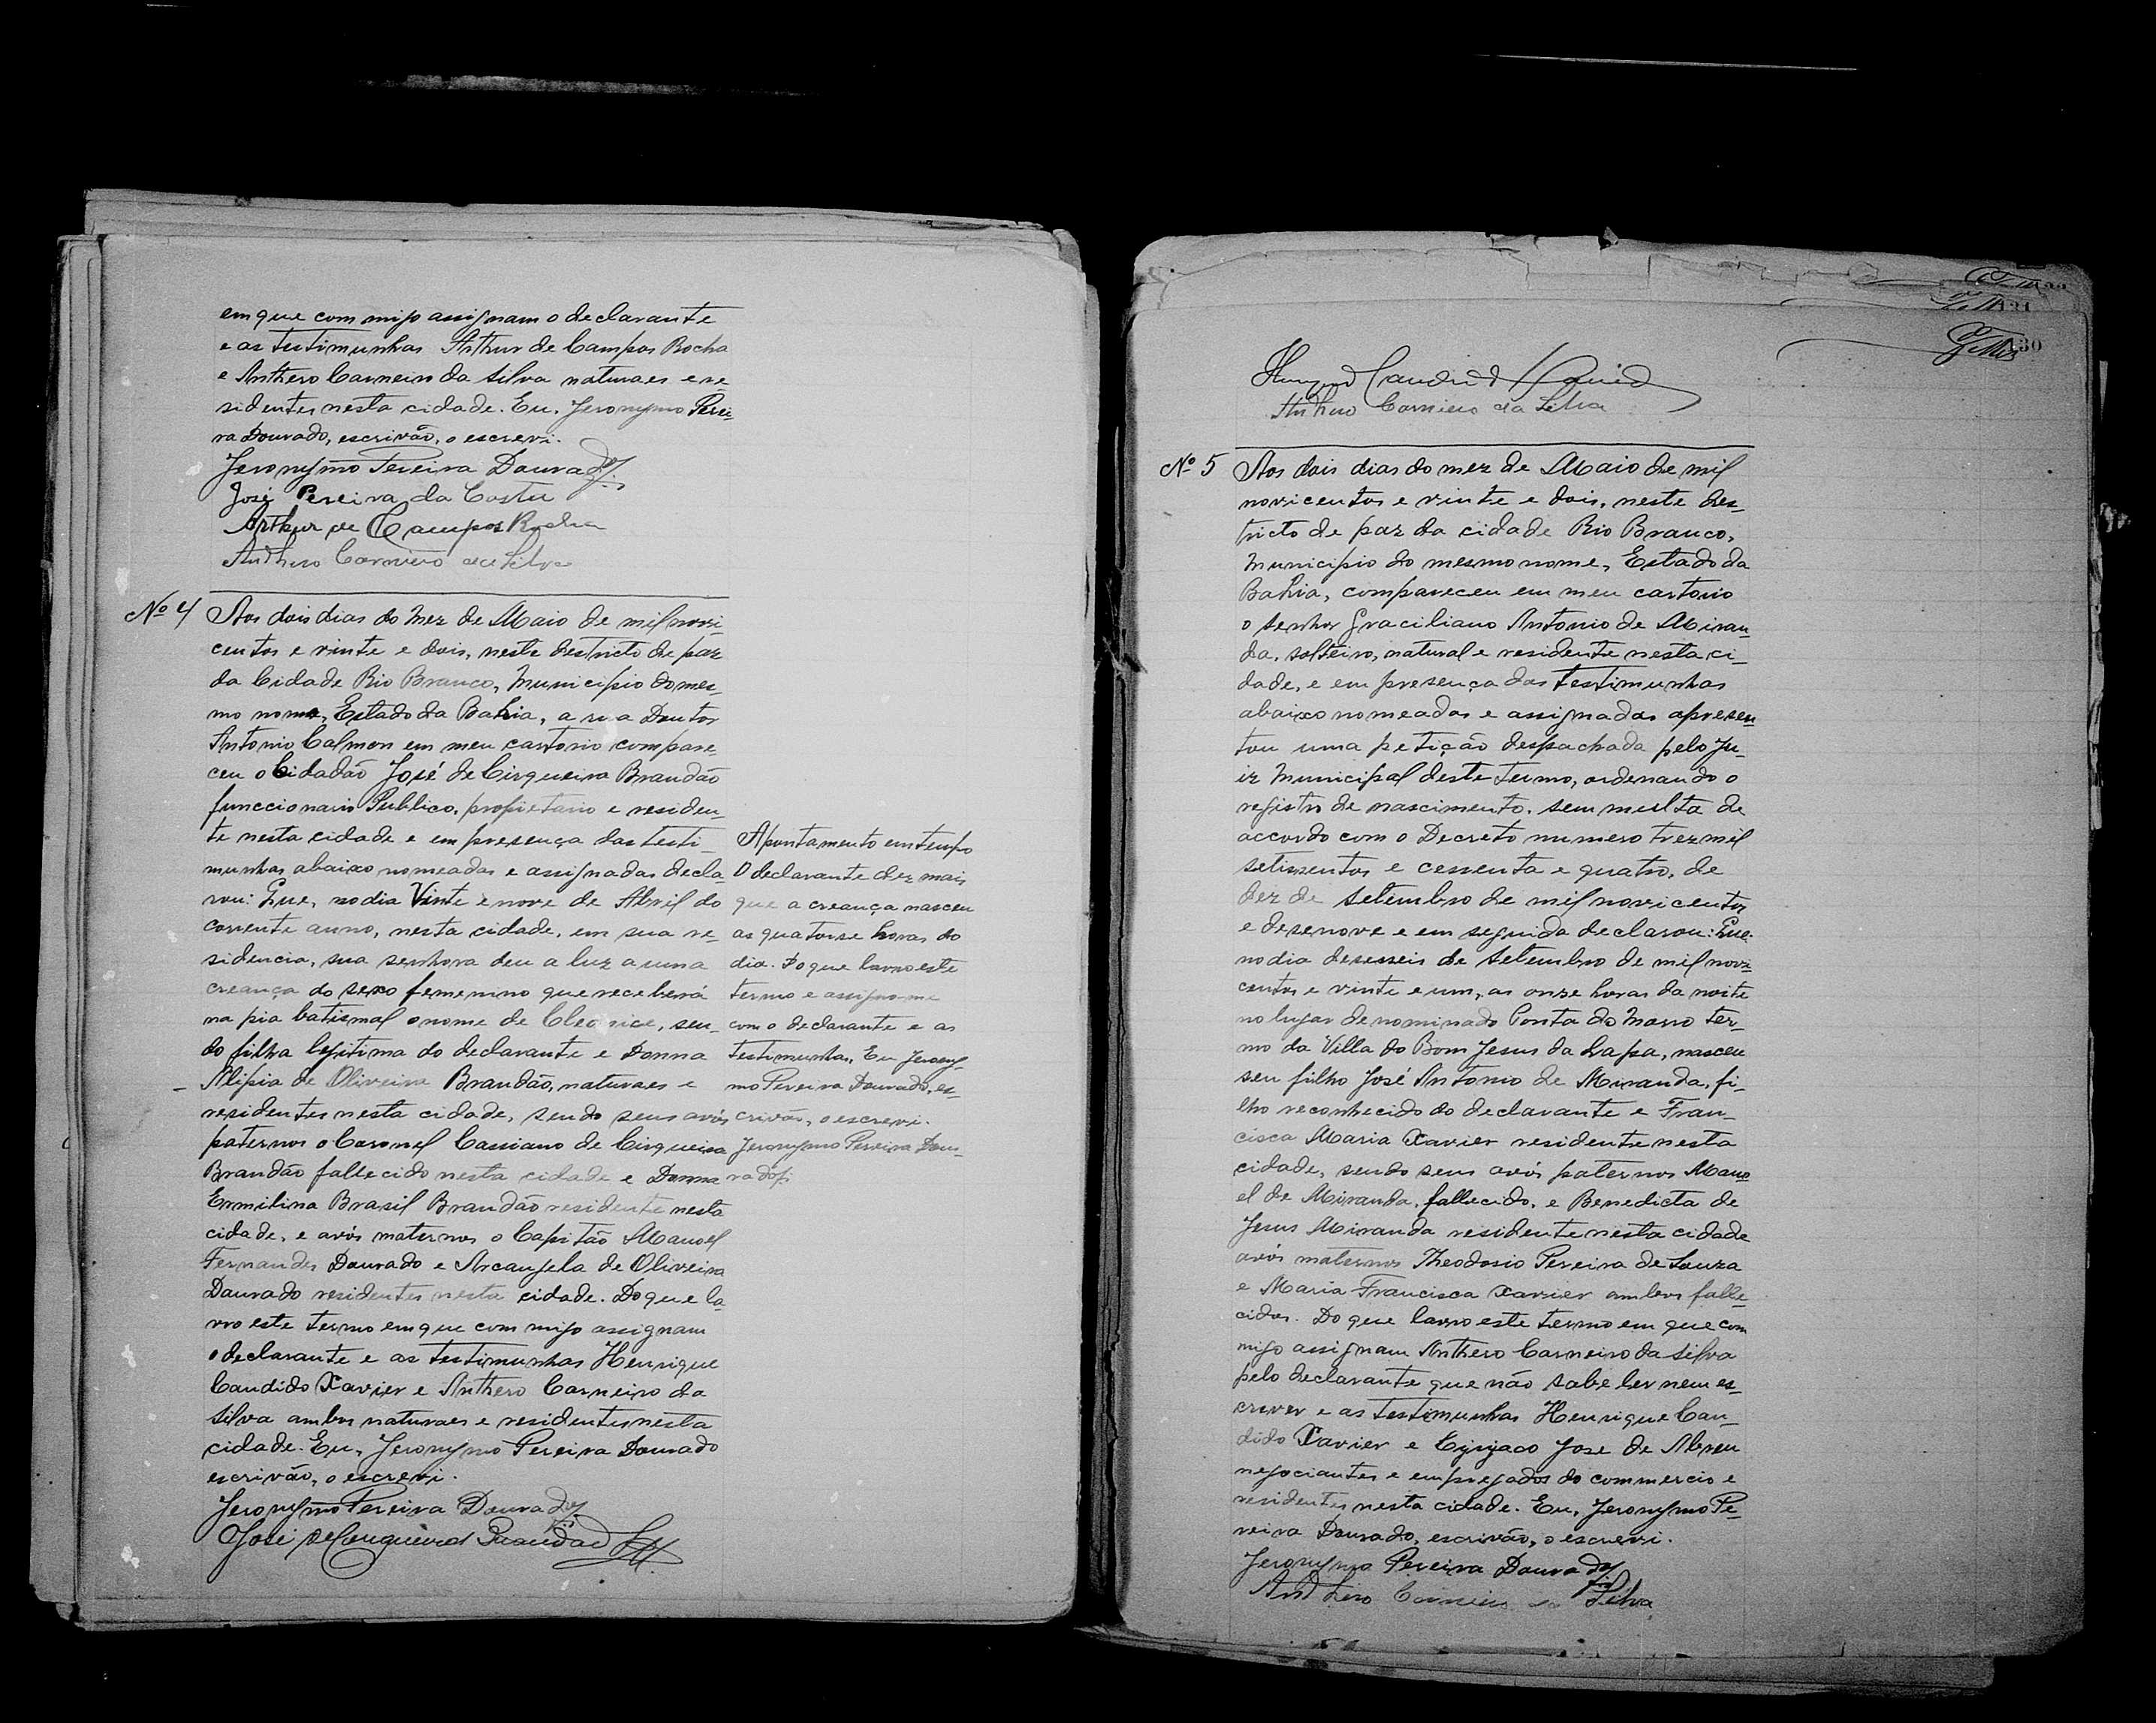 em que commigo assignam o declarante
e as testimunhas Arthur de Campos Rocha
e Anthero Carneiro da Silva naturaes e re-
sidentes nesta cidade. Eu, Jeronymo Perei-
ra Dourado, escrivão, o escrevi.
Jeronymo Pereira Dourado
José Pereira da Costa
Arthur de Campos Rocha
Anthero Carneiro da Silva
Nº 4 Aos dois dias do mez de Maio de mil novi-
centos e vinte e dois, neste destricto de paz
da Cidade Rio Branco, Municipio do mes-
mo nome, Estado da Bahia, a rua Doutor
Antonio Calmon em meu cartorio compare-
ceu o Cidadão José de Cirqueira Brandão
funccionario Publico, propietario e residen-
te nesta cidade e em presença das testi-
munhas abaixo nomeadas e assignadas decla-
rou: Que, no dia Vinte e nove de Abril do
corrente anno, nesta cidade, em sua re-
sidencia, sua senhora deu a luz a uma
creança do sexo femenino que receberá
na pia batismal o nome de Cleonice, sen-
do filha legitima do declarante e Donna
Alipia de Oliveira Brandão, naturaes e
residentes nesta cidade, sendo seus avós
paternos o Coronel Cassiano de Cirqueira
Brandão fallecido nesta cidade e Donna
Ermilina Brasil Brandão residente nesta
cidade, e avós maternos o Capitão Manoel
Fernandes Dourado e Arcangela de Oliveira
Dourado residentes nesta cidade. Do que la-
vro este termo em que commigo assignam
o declarante e as testimunhas Henrique
Candido Xavier e Anthero Carneiro da
Silva ambos naturaes e residentes nesta
cidade. Eu, Jeronymo Pereira Dourado
escrivão, o escrevi.
Jeronymo Pereira Dourado
José de Cirqueira Brandão
Apontamento em tempo
O declarante diz mais
que a creança nasceu
as quatorse horas do
dia. Do que lavro este
termo e assigno-me
com o declarante e as
testimunhas, Eu Jerony-
mo Pereira Dourado, es-
crivão, o escrevi.
Jeronymo Pereira Dou-
rado
130
Henrique Candido Xavier
Anthero Carneiro da Silva
Nº 5 Aos dois dias do mez de Maio de mil
novicentos e vinte e dois, neste des-
tricto de paz da cidade Rio Branco,
Municipio do mesmo nome, Estado da
Bahia, compareceu em meu cartorio
o senhor Graciliano Antonio de Miran-
da, solteiro, natural e residente nesta ci-
dade, e em presença das testimunhas
abaixo nomeadas e assignadas apresen-
tou uma petição despachada pelo Ju-
iz Municipal deste termo, ordenando o
registro de nascimento, sem multa de
accordo com o Decreto numero trez mil
setissentos e cessenta e quatro, de
dez de Setembro de mil novicentos
e desenove e em seguida declarou: Que
no dia desesseis de Setembro de mil novi-
centos e vinte e um, as onze horas da noite
no lugar denominado Ponta do Morro ter-
mo da Villa do Bom Jesus da Lapa, nasceu
seu filho José Antonio de Miranda, fi-
lho reconhecido do declarante e Fran-
cisca Maria Xavier residente nesta
cidade, sendo seus avós paternos Mano-
el de Miranda, fallecido, e Benedicta de
Jesus Miranda residente nesta cidade
avós maternos Theodosio Pereira de Souza
e Maria Francisca Xavier ambos falle-
cidos. Do que lavro este termo em que com
migo assignam Anthero Carneiro da Silva
pelo declarante que não sabe ler nem es-
crever e as testimunhas Henrique Can-
dido Xavier e Cyriaco José de Abreu
negociantes e empregados do commercio e
residentes nesta cidade. Eu, Jeronymo Pe-
reira Dourado, escrivão, o escrevi.
Jeronymo Pereira Dourado
Anthero Carneiro da Silva